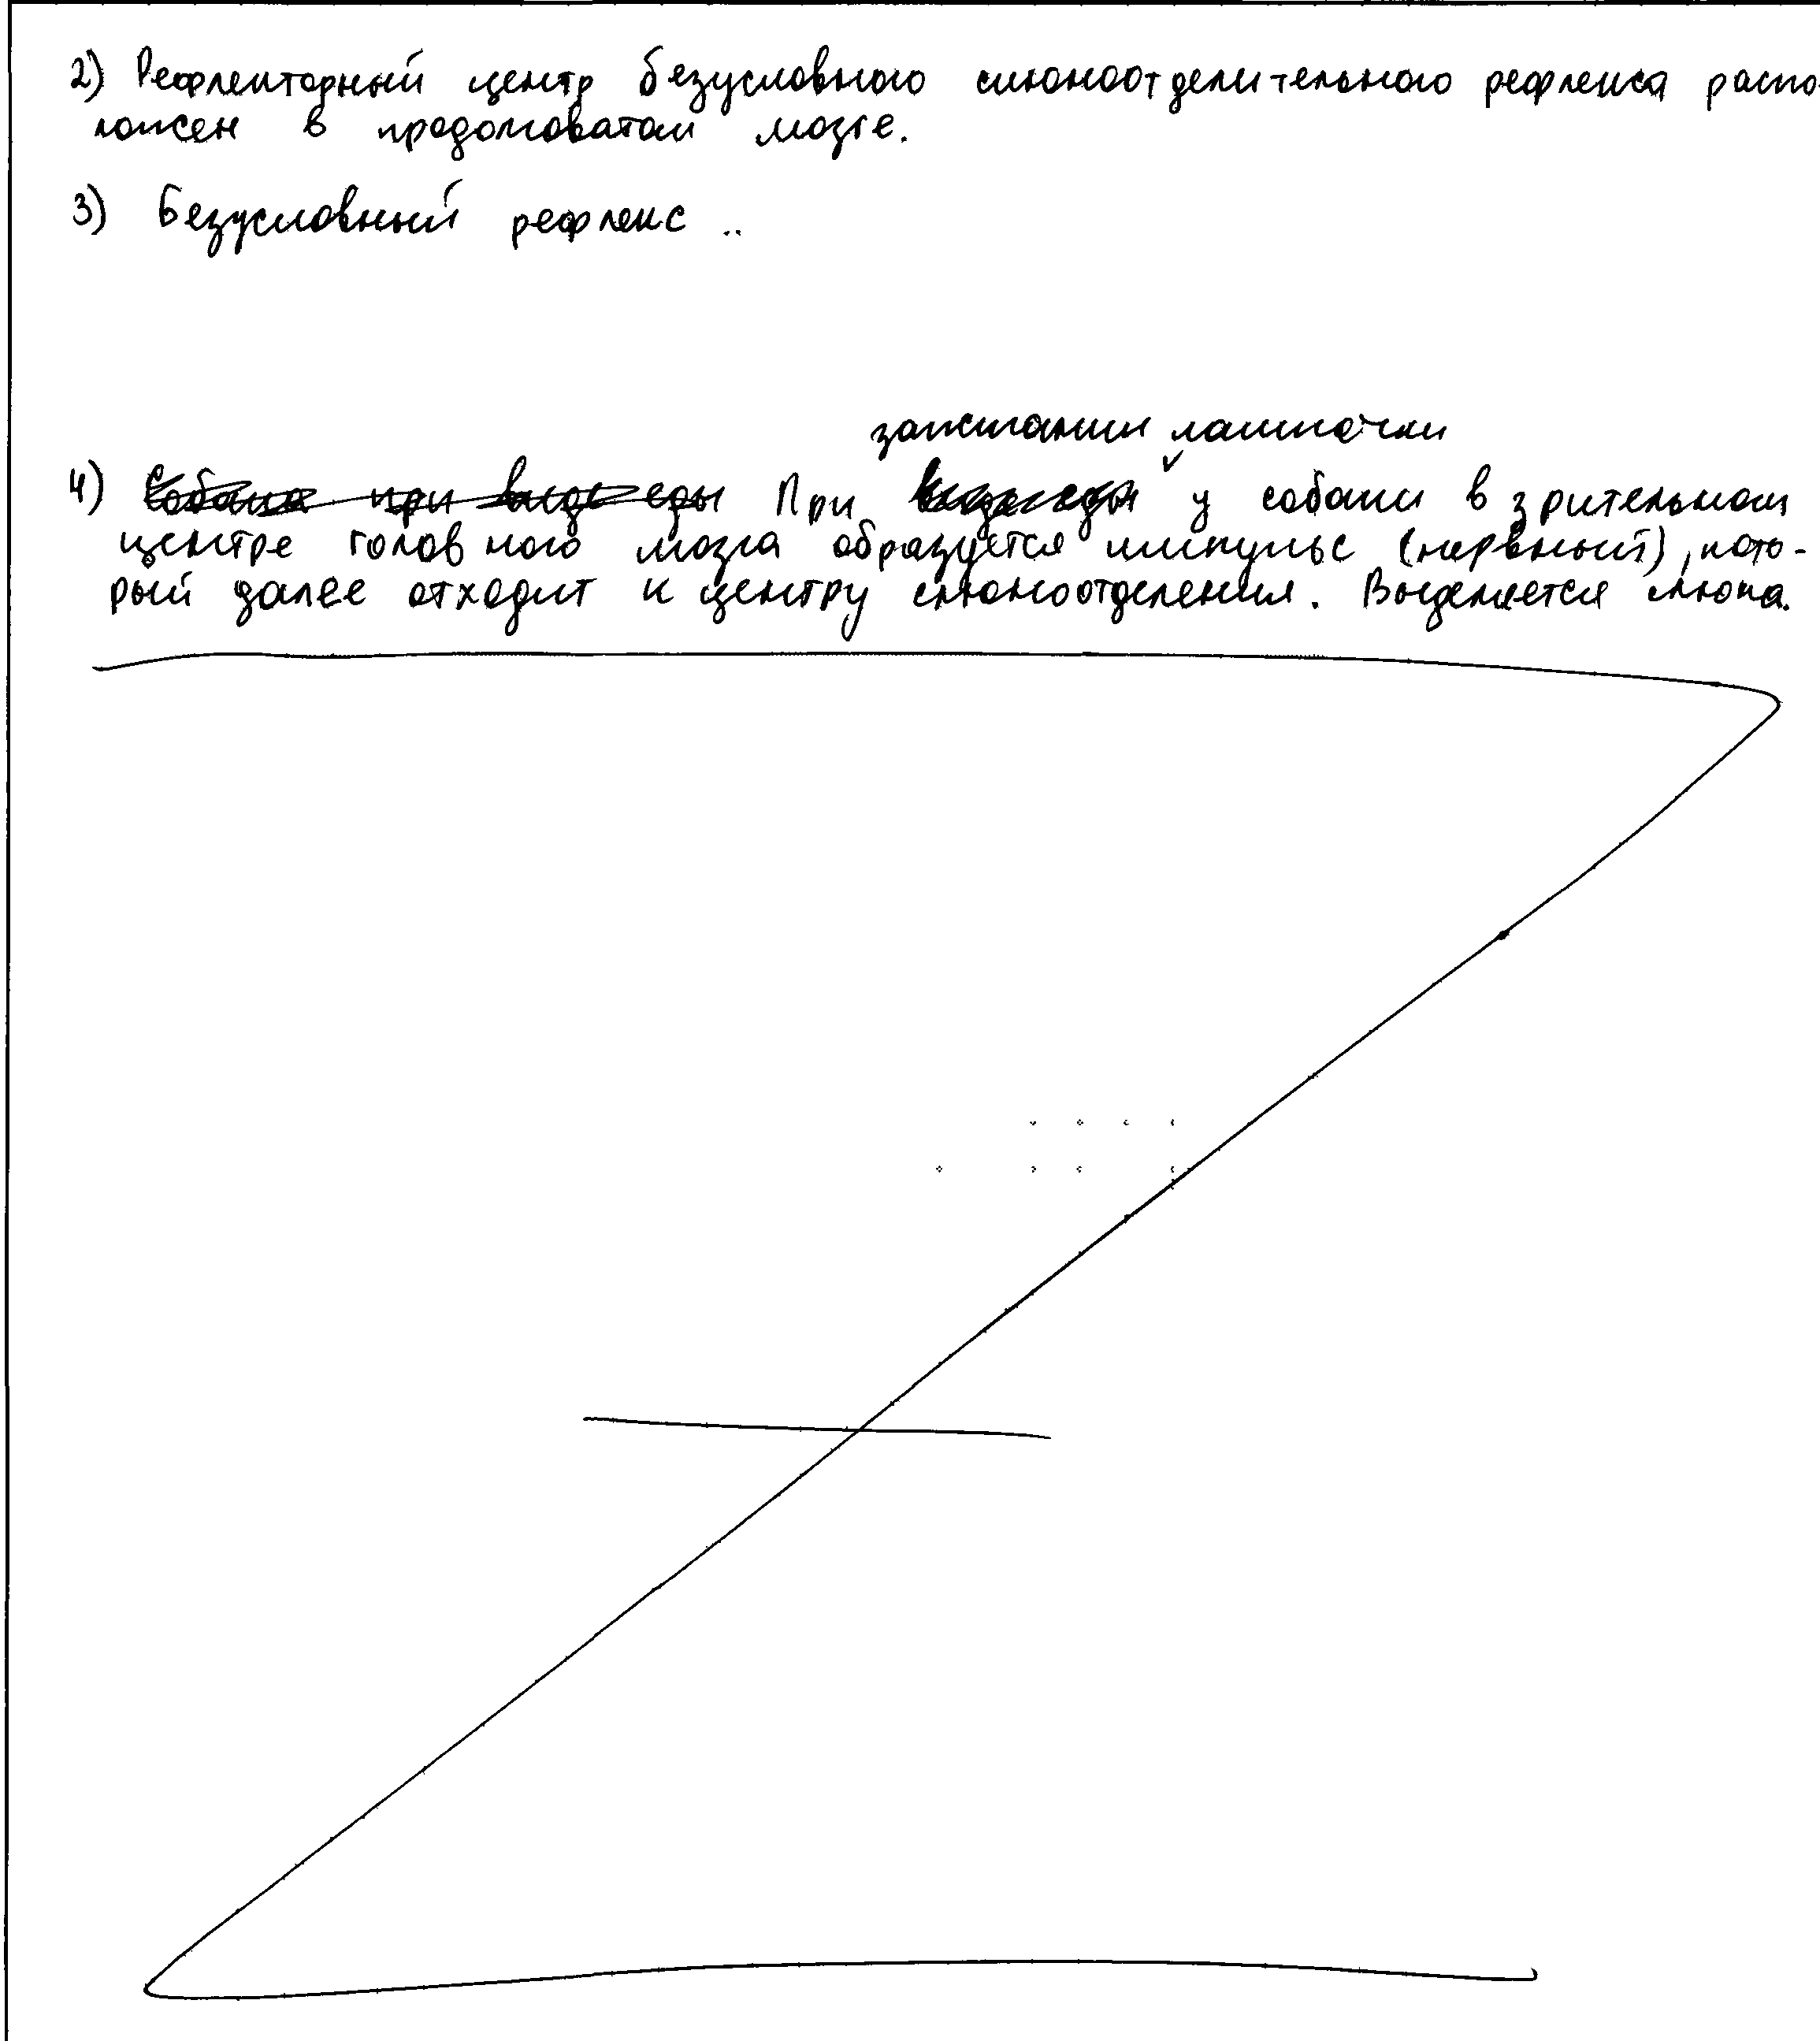 2) Рефлекторный центр безусловного слюноотделительного рефлекса распо-
ложен в продолговатом мозге.
3) Безусловный рефлекс ..
зажигании лампочки
4) Собака при виде еды При виде еды у собаки в зрительном
центре головного мозга образуется импульс (нервный), кото-
рый далее отходит к центру слюноотделения. Выделяется слюна.